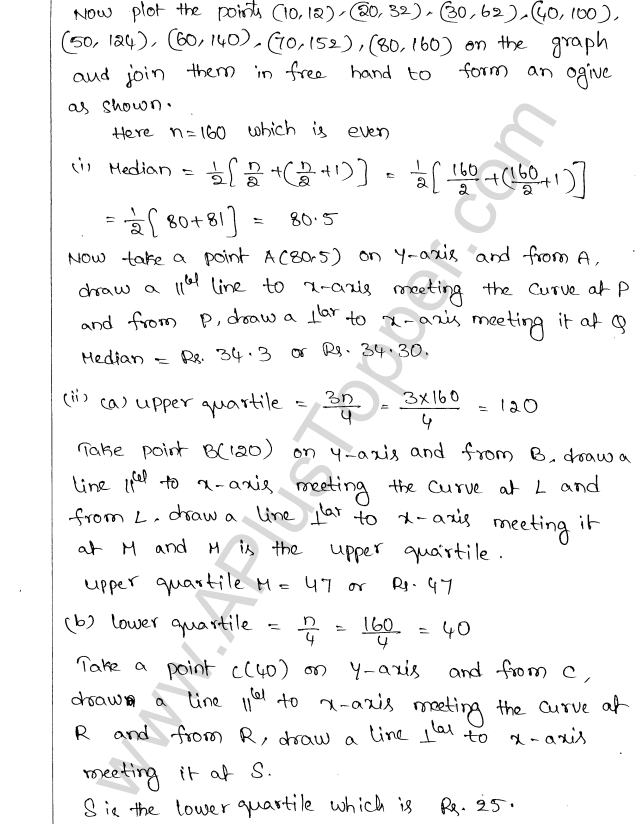 Now plot the points (10,12), (20,32), (30,62), (40,100),
(50,124), (60,140), (70,152), (80,160) on the graph
and join them in free hand to form an ogive
as shown.
Here n=160 which is even
(i) Median = 1/2 [n/2 + (n/2 + 1)] = 1/2 [160/2 + (160/2 + 1)]
= 1/2 [80+81] = 80.5
Now take a point A(80.5) on y-axis and from A,
draw a ||el line to x-axis meeting the curve at P
and from P, draw a ⊥lar to x-axis meeting it at Q
Median = Rs. 34.3 or Rs. 34.30.
(ii) (a) upper quartile = 3n/4 = 3×160/4 = 120
Take point B(120) on y-axis and from B, draw a
line ||el to x-axis meeting the curve at L and
from L, draw a line ⊥lar to x-axis meeting it
at M and M is the upper quartile.
upper quartile M = 47 or Rs. 47
(b) lower quartile = n/4 = 160/4 = 40
Take a point C(40) on y-axis and from C,
draw a line ||el to x-axis meeting the curve at
R and from R, draw a line ⊥lar to x-axis
meeting it at S.
S is the lower quartile which is Rs. 25.
www.APlusTopper.com